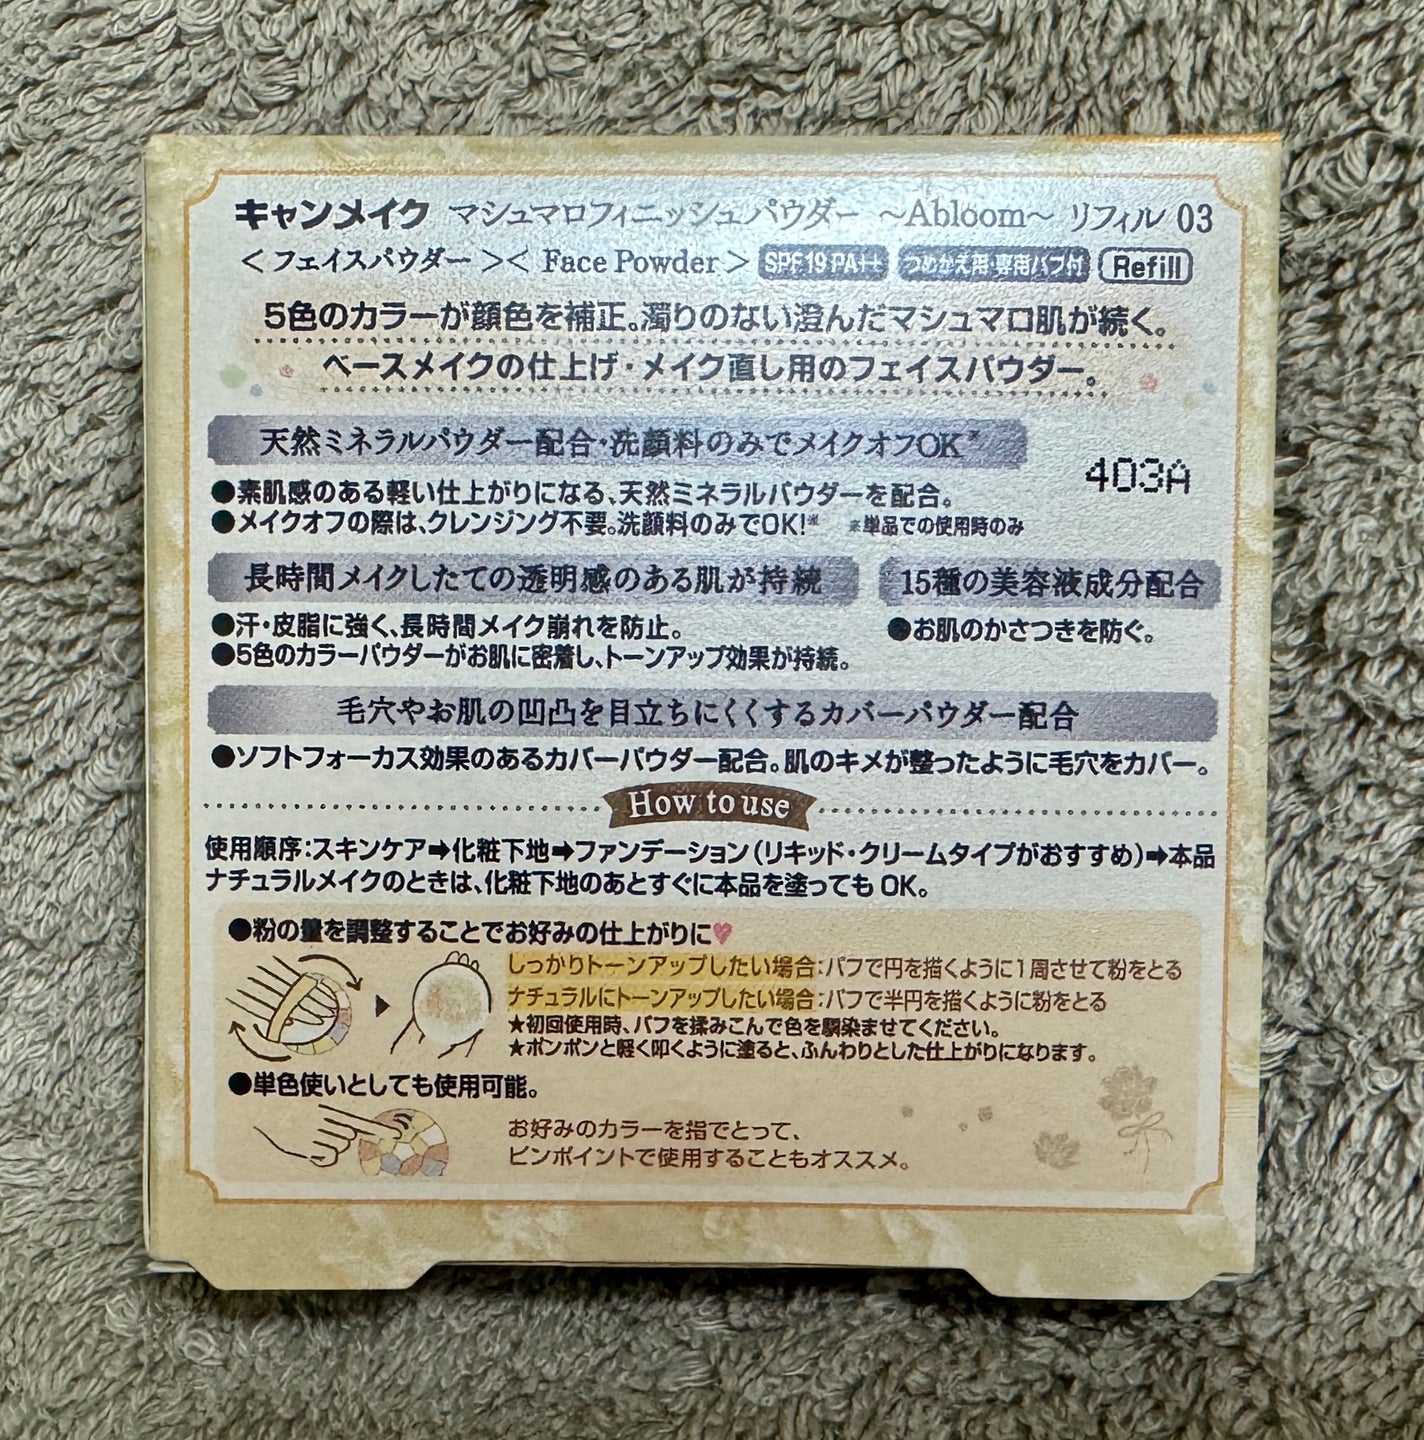 キャンメイク マシュマロフィニッシュパウダー ～Abloom～ リフィル 03
＜フェイスパウダー＞＜ Face Powder＞ SPF19 PA++ つめかえ用・専用パフ付 Refill
5色のカラーが顔色を補正。濁りのない澄んだマシュマロ肌が続く。
ベースメイクの仕上げ・メイク直し用のフェイスパウダー。
天然ミネラルパウダー配合・洗顔料のみでメイクオフOK※
403A
●素肌感のある軽い仕上がりになる、天然ミネラルパウダーを配合。
●メイクオフの際は、クレンジング不要。洗顔料のみでOK!※ ※単品での使用時のみ
長時間メイクしたての透明感のある肌が持続
●汗・皮脂に強く、長時間メイク崩れを防止。
●5色のカラーパウダーがお肌に密着し、トーンアップ効果が持続。
15種の美容液成分配合
●お肌のかさつきを防ぐ。
毛穴やお肌の凹凸を目立ちにくくするカバーパウダー配合
●ソフトフォーカス効果のあるカバーパウダー配合。肌のキメが整ったように毛穴をカバー。
How to use
使用順序:スキンケア➡化粧下地➡ファンデーション(リキッド・クリームタイプがおすすめ)➡本品
ナチュラルメイクのときは、化粧下地のあとすぐに本品を塗ってもOK。
●粉の量を調整することでお好みの仕上がりに♥
しっかりトーンアップしたい場合:パフで円を描くように1周させて粉をとる
ナチュラルにトーンアップしたい場合:パフで半円を描くように粉をとる
★初回使用時、パフを揉みこんで色を馴染ませてください。
★ポンポンと軽く叩くように塗ると、ふんわりとした仕上がりになります。
●単色使いとしても使用可能。
お好みのカラーを指でとって、
ピンポイントで使用することもオススメ。